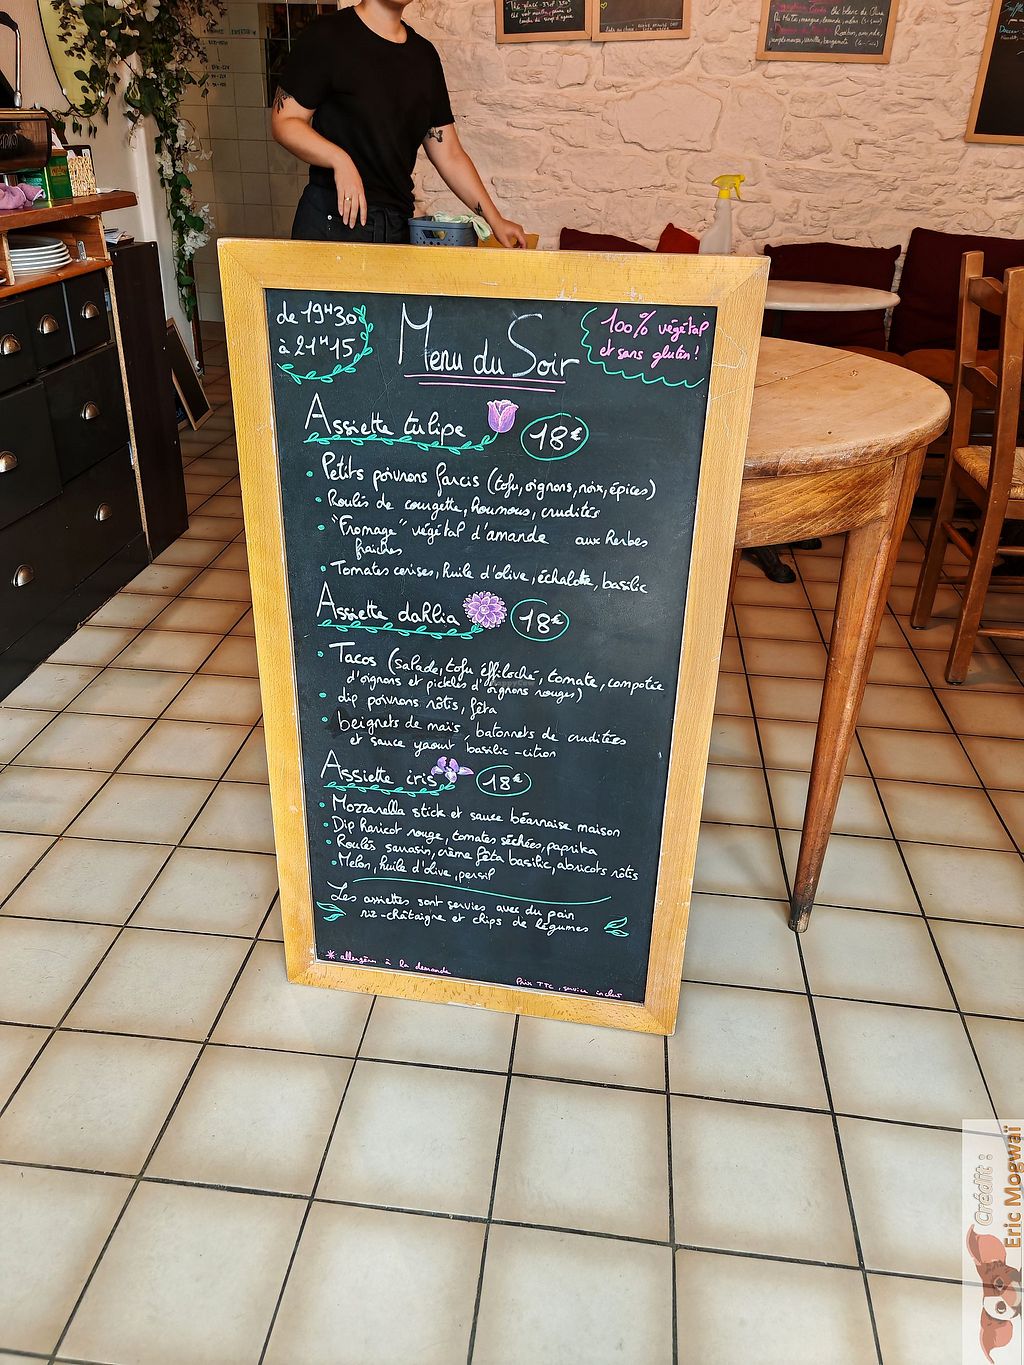 de 19H30
à 21H15
Menu du Soir
100% végétal
et sans gluten!
Assiette tulipe 18€
• Petits poivrons farcis (tofu, oignons, noix, épices)
• Roulés de courgette, houmous, crudités
• "Fromage" végétal d'amande aux herbes
fraîches
• Tomates cerises, huile d'olive, échalote, basilic
Assiette dahlia 18€
• Tacos (salade, tofu éffiloché, tomate, compotée
d'oignons et pickles d'oignons rouges)
• dip poivrons rôtis, fêta
• beignets de maïs, batonnets de cruditées
et sauce yaourt basilic-citron
Assiette iris 18€
• Mozzarella stick et sauce béarnaise maison
• Dip haricot rouge, tomates séchées, paprika
• Roulés sarrasin, crème fêta basilic, abricots rôtis
• Melon, huile d'olive, persil
Les assiettes sont servies avec du pain
riz-châtaigne et chips de légumes
* allergènes à la demande
Prix TTC, service inclus
Crédit :
Eric Mogwaï